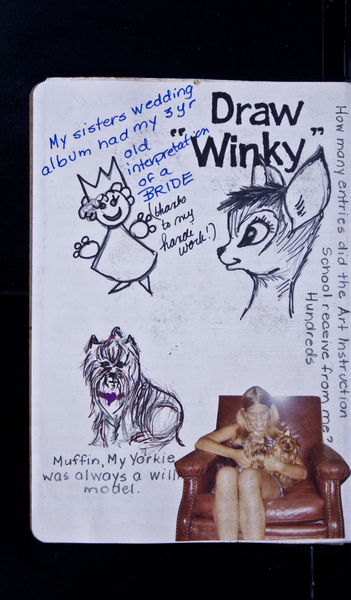 My sisters wedding
album had my 3yr
old
interpretation
of a
BRIDE
(thanks
to my
handi
work!)
Draw
"Winky"
How many entries did the Art Instruction
School receive from me?
Hundreds
Muffin, My Yorkie
was always a will
model.